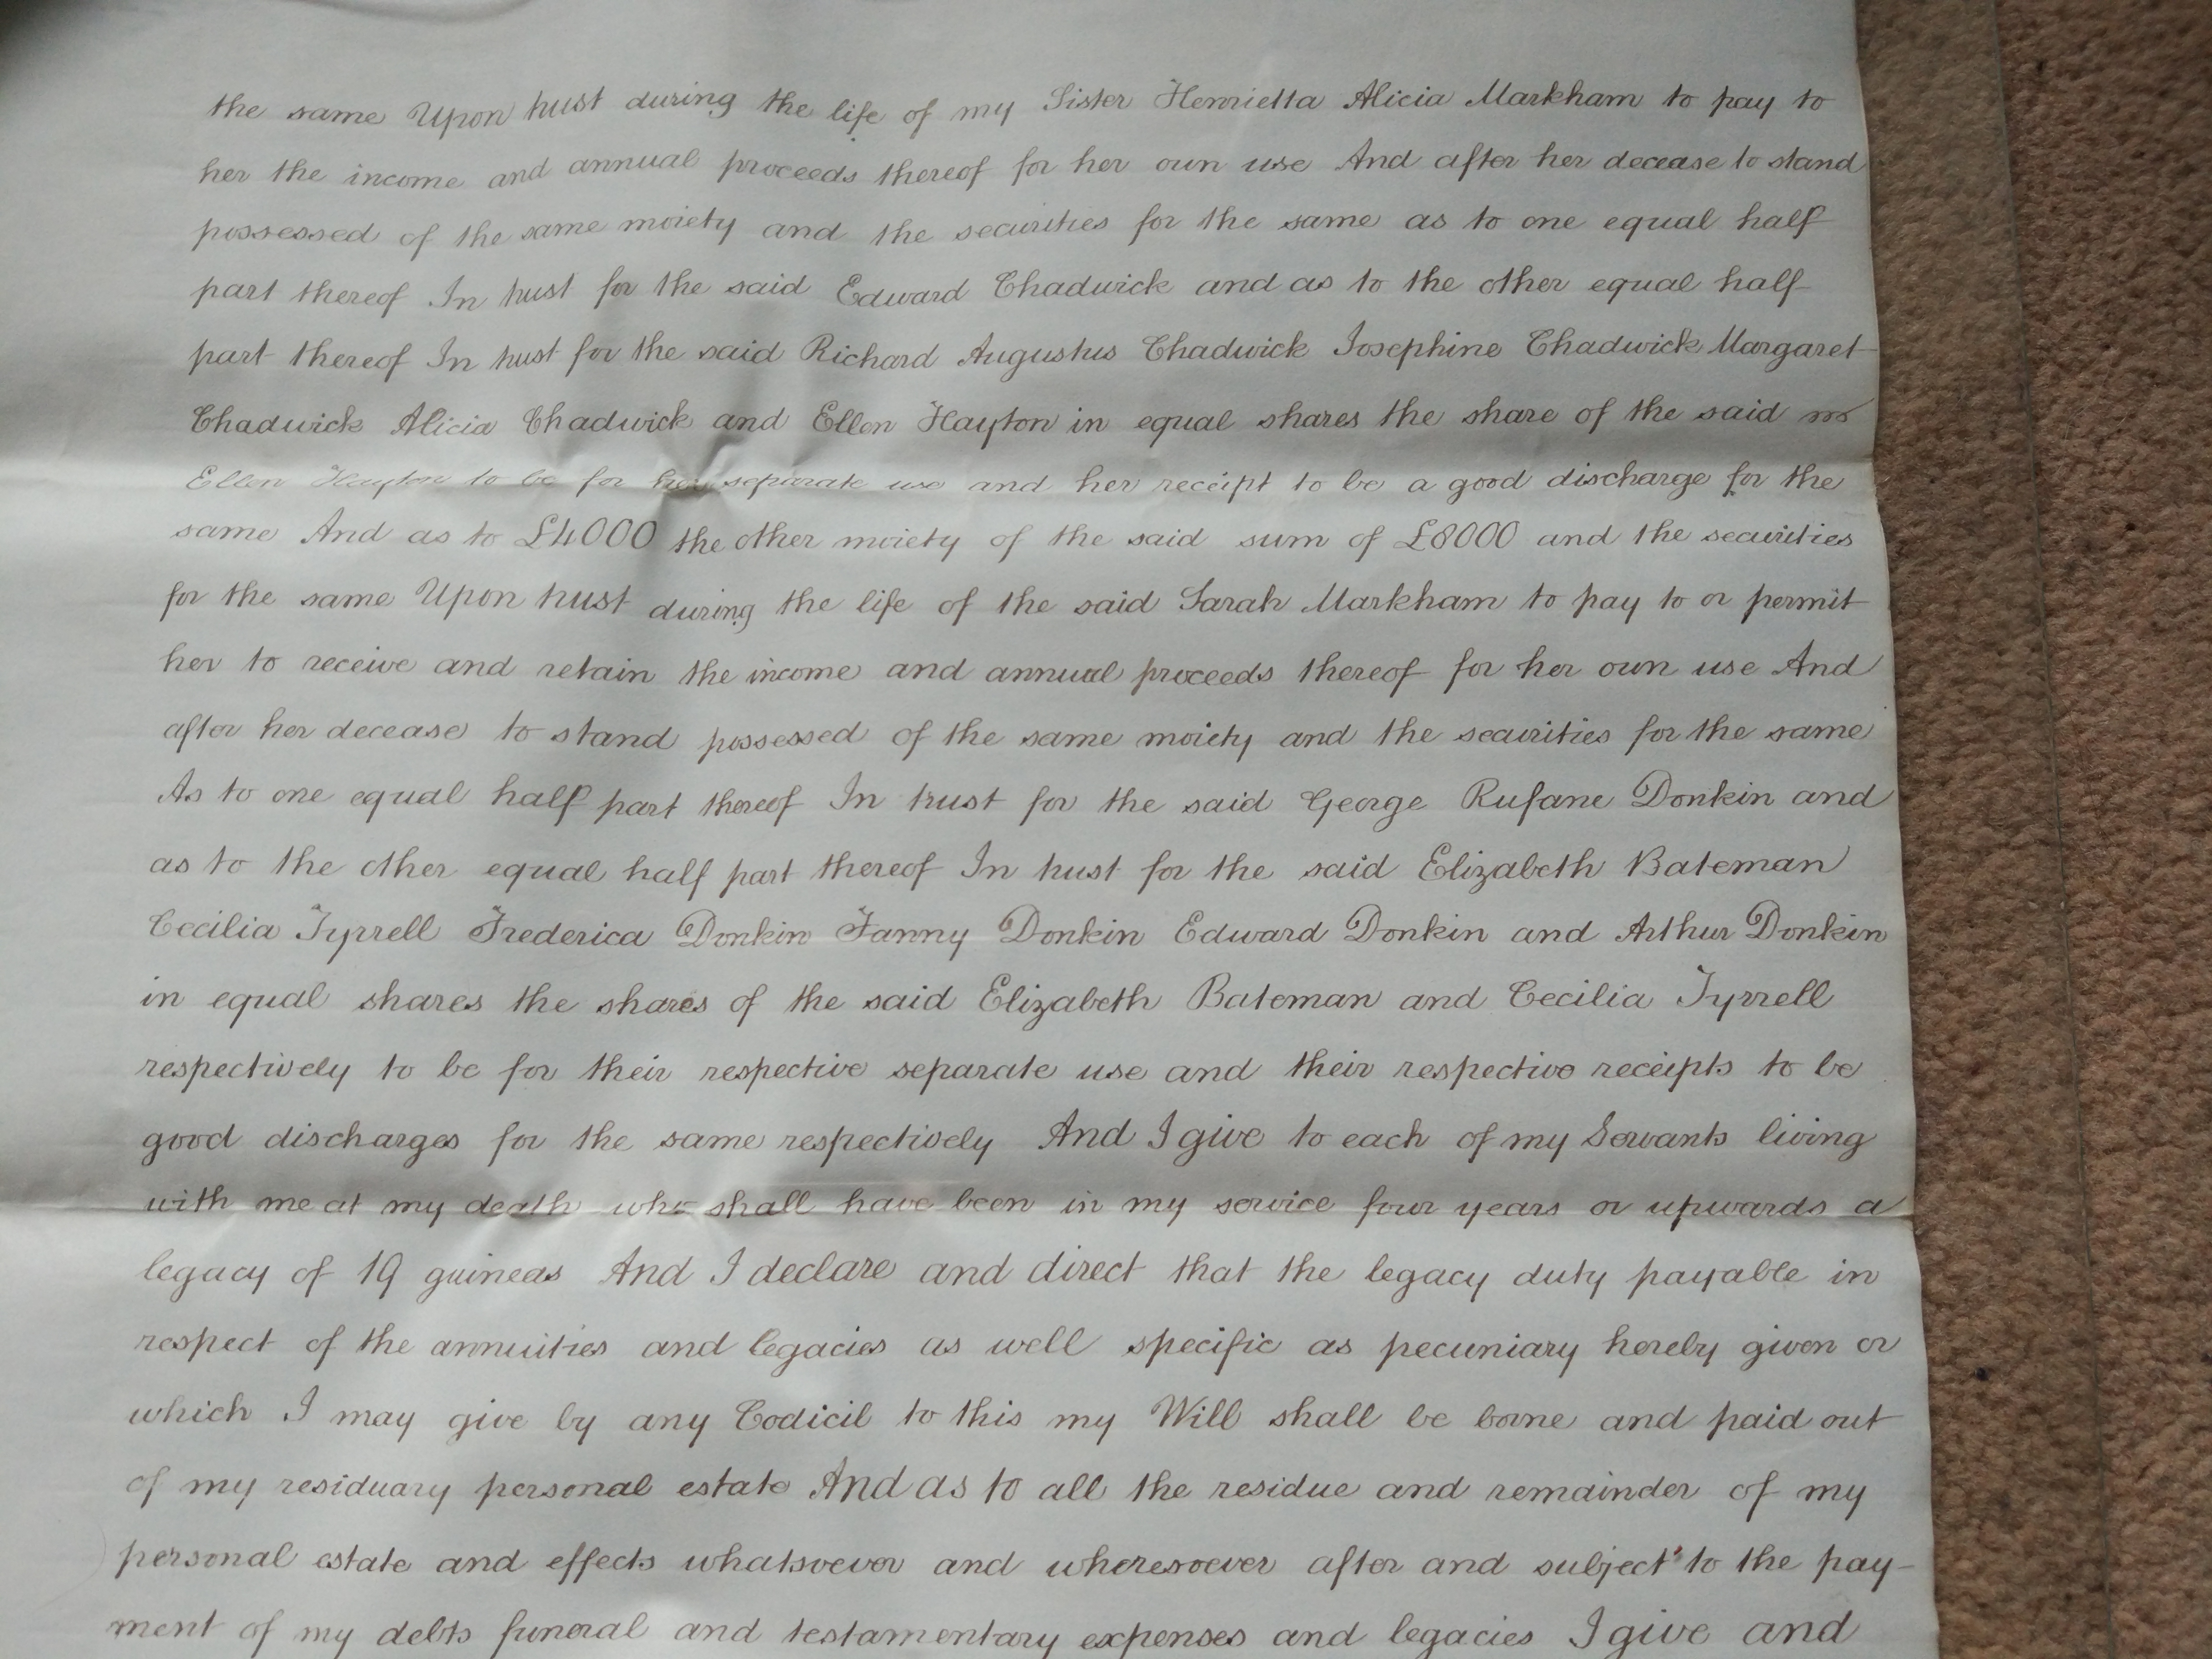 the same Upon trust during the life of my Sister Henrietta Alicia Markham to pay to
her the income and annual proceeds thereof for her own use And after her decease to stand
possessed of the same moiety and the securities for the same as to one equal half
part thereof In trust for the said Edward Chadwick and as to the other equal half
part thereof In trust for the said Richard Augustus Chadwick Josephine Chadwick Margaret
Chadwick Alicia Chadwick and Ellen Hayton in equal shares the share of the said
Ellen Hayton to be for her separate use and her receipt to be a good discharge for the
same And as to £4000 the other moiety of the said sum of £8000 and the securities
for the same Upon trust during the life of the said Sarah Markham to pay to or permit
her to receive and retain the income and annual proceeds thereof for her own use And
after her decease to stand possessed of the same moiety and the securities for the same
As to one equal half part thereof In trust for the said George Rufane Donkin and
as to the other equal half part thereof In trust for the said Elizabeth Bateman
Cecilia Tyrrell Frederica Donkin Fanny Donkin Edward Donkin and Arthur Donkin
in equal shares the shares of the said Elizabeth Bateman and Cecilia Tyrrell
respectively to be for their respective separate use and their respective receipts to be
good discharges for the same respectively And I give to each of my Servants living
with me at my death who shall have been in my service four years or upwards a
legacy of 19 guineas And I declare and direct that the legacy duty payable in
respect of the annuities and legacies as well specific as pecuniary hereby given or
which I may give by any Codicil to this my Will shall be borne and paid out
of my residuary personal estate And as to all the residue and remainder of my
personal estate and effects whatsoever and wheresoever after and subject to the pay-
ment of my debts funeral and testamentary expenses and legacies I give and